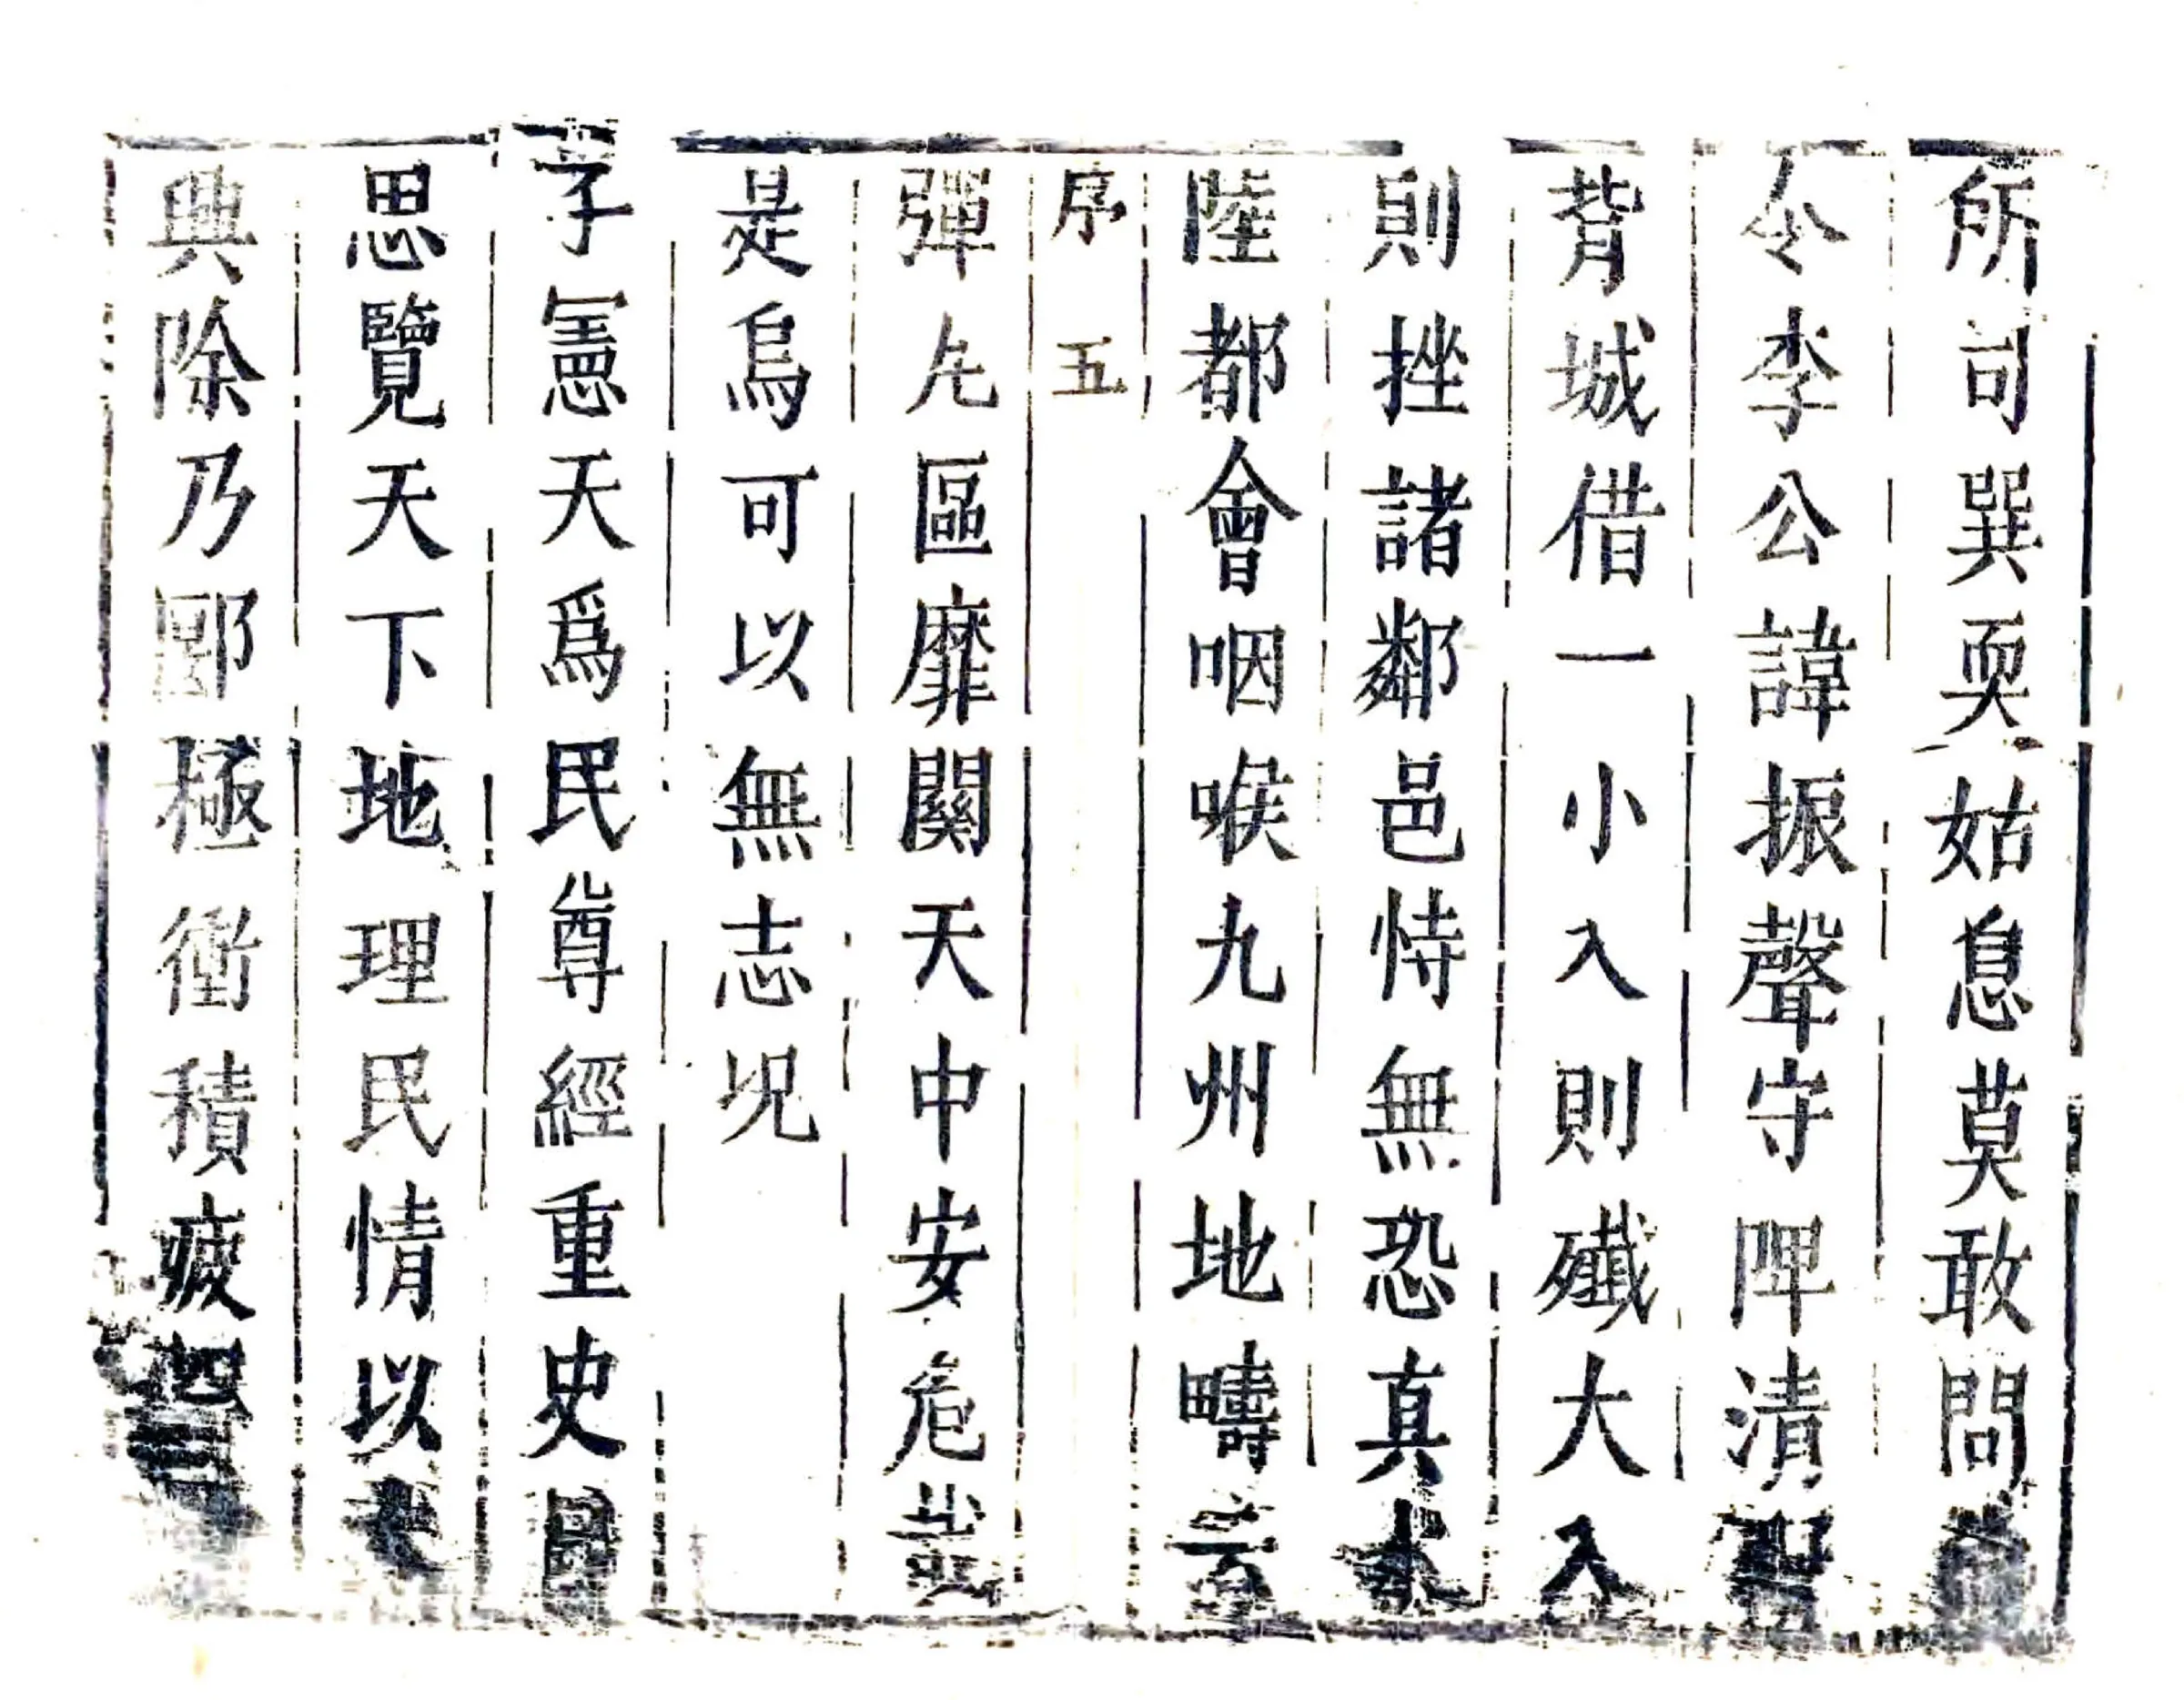 所司巽耎姑息莫敢問
令李公諱振聲守陴漬
背城借一小入則殲大入
則挫諸鄰邑恃無恐真
陸都會咽喉九州地疇
序 五
彈丸區靡關天中安危
是烏可以無志況
子憲天爲民尊經重史
思覽天下地理民情以
興除乃郾極衝積疲